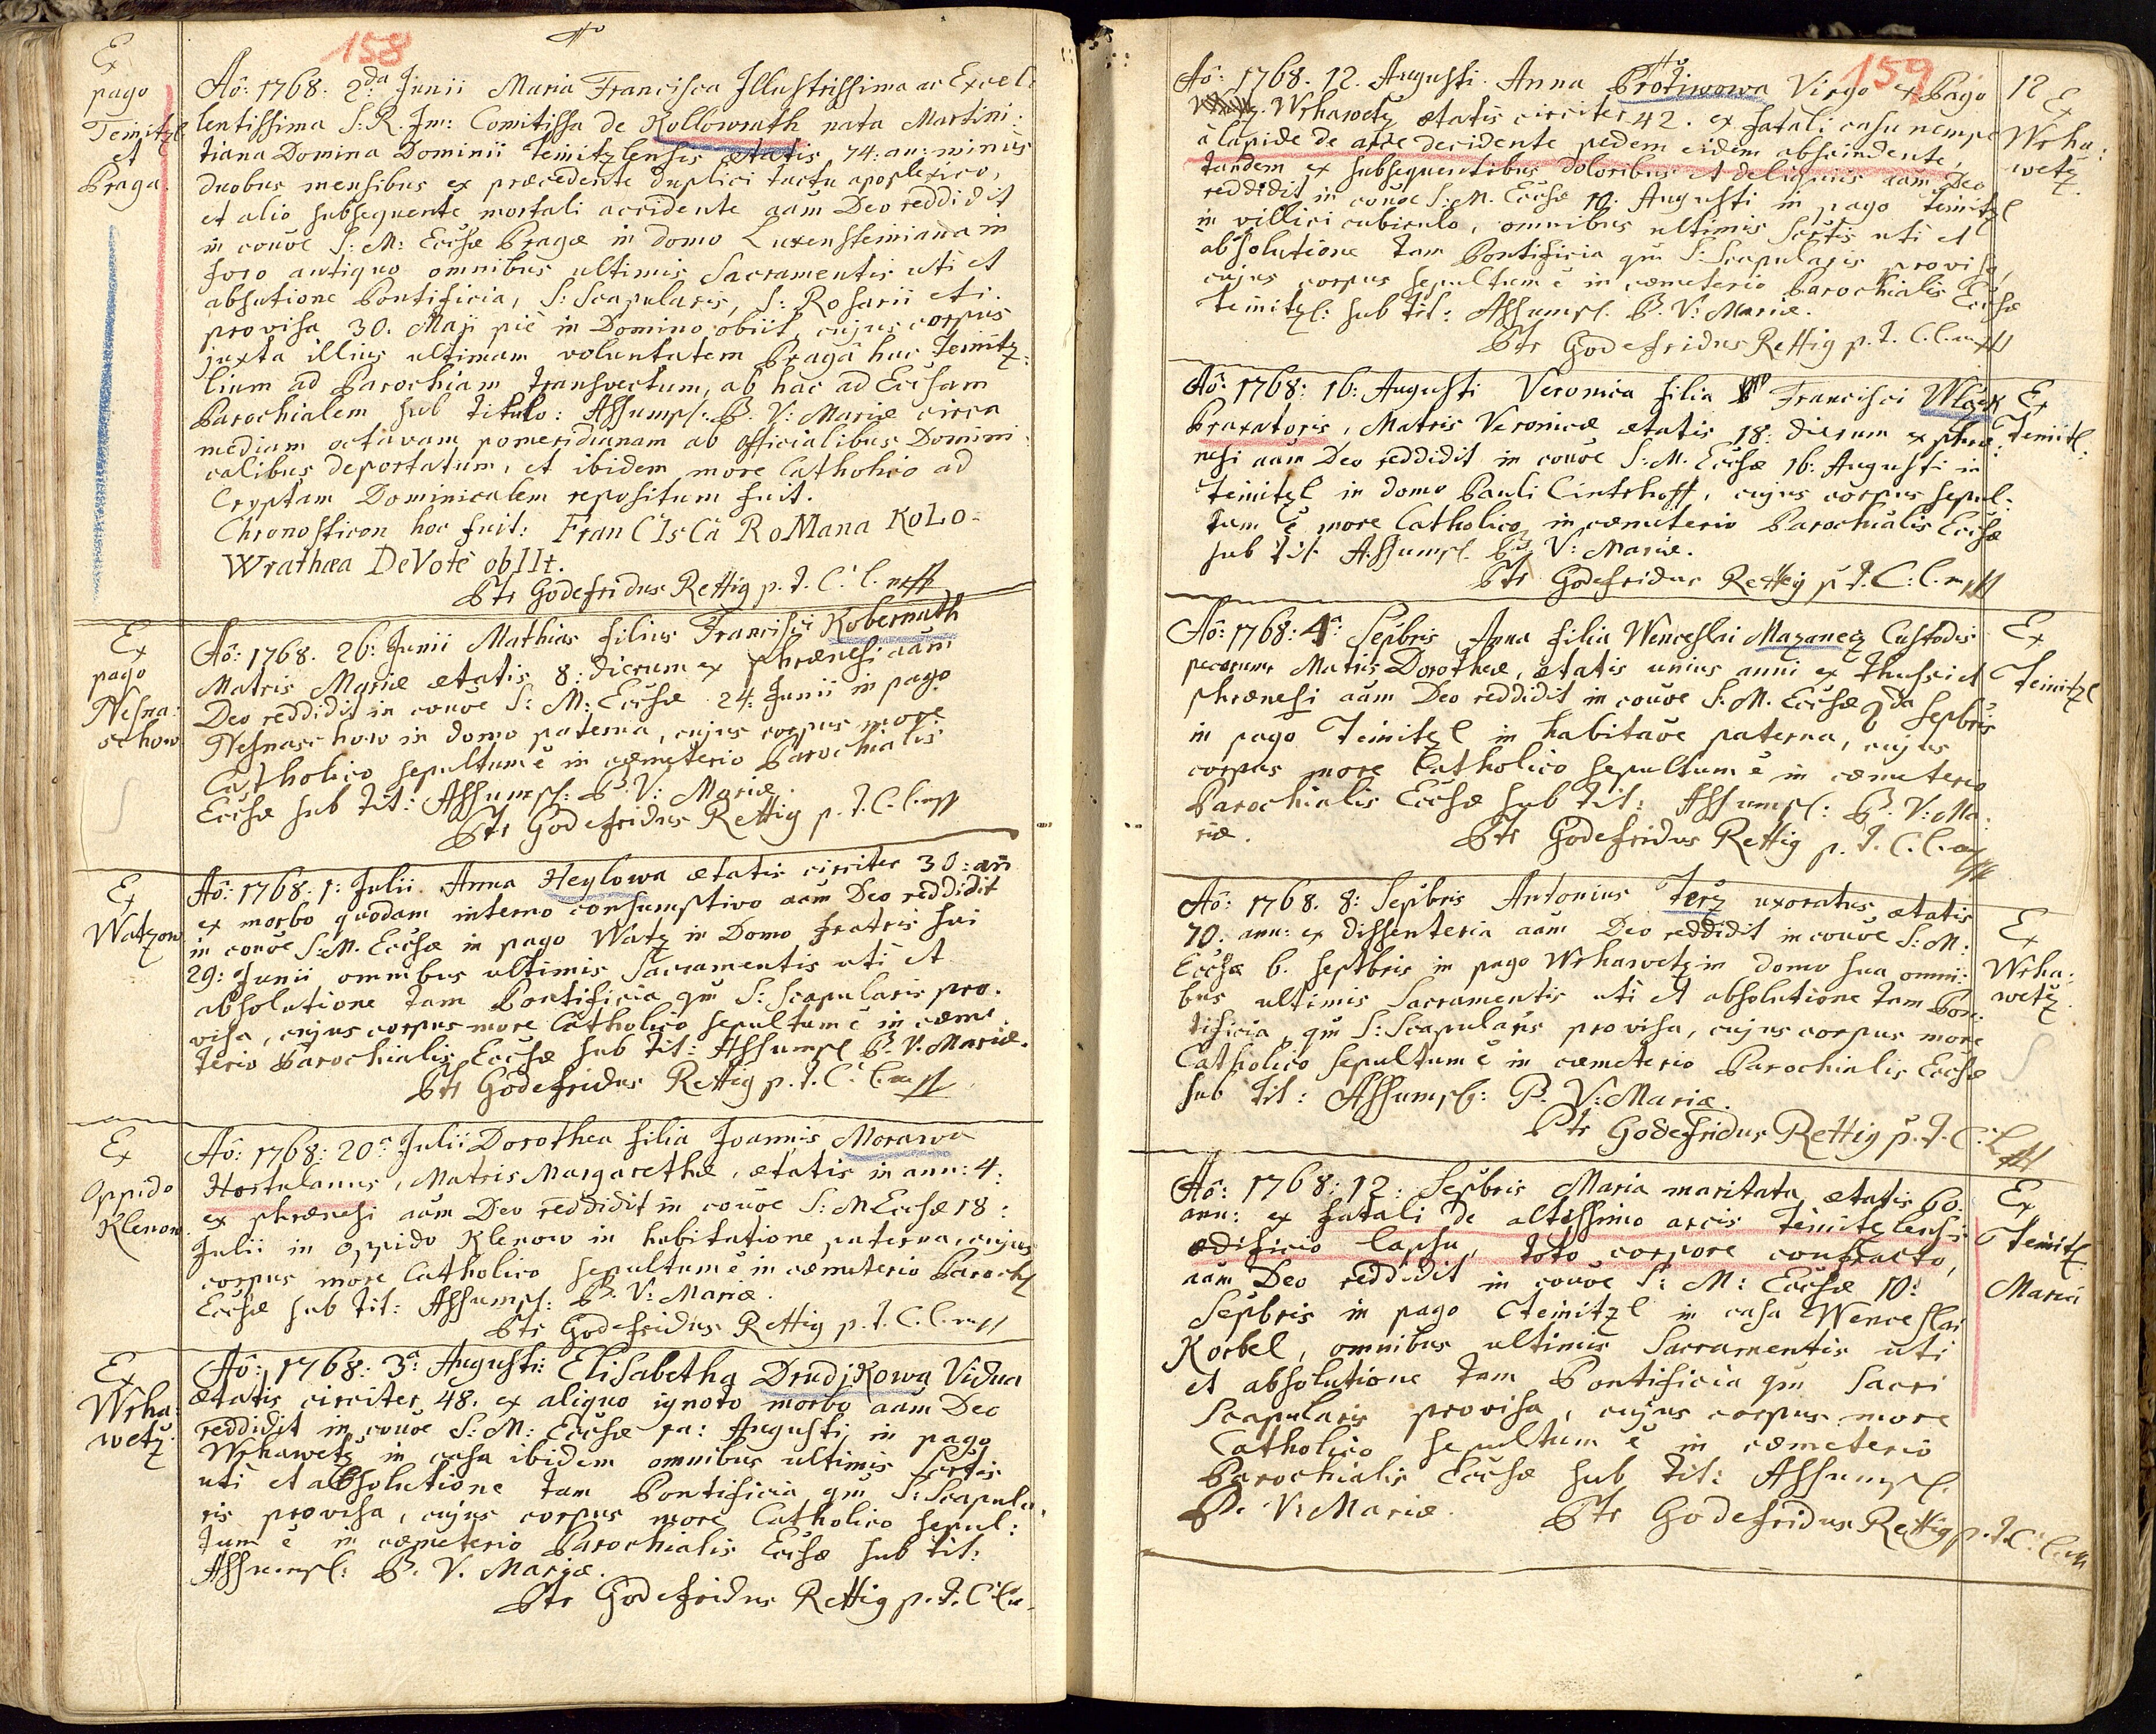 158
Ex
pago
Teinitzl
et
Praga.
Aô: 1768. 2da Junii Maria Francisca Illustrissima ac Excel:
lentissima S: R. Im: Comitissa de Kollowrath nata Martini:
tiana Domina Dominii Teinitzlensis ætatis 74: an: minus
duobus mensibus ex præcedente duplici tactu apoplexico,
et alio subsequente mortali accidente aãm Deo reddidit
in couõe S: M: Ecclsæ Pragæ in domo Luxensteiniana in
foro antiquo omnibus ultimis Sacramentis uti et
absutione Pontificia, S: Scapularis, S: Rosarii etc.
provisa 30. Maji piè in Domino obiit, cujus corpus
juxta illius ultimam voluntatem Pragâ huc Teinitz:
lium ad Parochiam transvectum, ab hac ad Ecclsam
Parochialem sub titulo: Assumpt: B. V: Mariæ circa
mediam octavam pomeridianam ab officialibus Domini:
calibus deportatum, et ibidem more Catholico ad
Cryptam Dominicalem repositum fuit.
Chronosticon hoc fuit: FranCIsCa RoMana KoLo-
Wrathæa DeVotè obIIt.
Ptr Godefridus Rettig p. t. C: l. mpp
Ex
pago
Nesna:
schow
Aô: 1768. 26: Junii Mathias filius Francisci Kobernath
Matris Mariæ ætatis 8: dierum ex phrænesi aãm
Deo reddidit in couõe S: M: Ecclsæ 24: Junii in pago
Nesnaschow in domo paterna, cujus corpus more
Catholico sepultum ẽ in cæmeterio Parochialis
Ecclsæ sub tit: Assumpt: B: V: Mariæ.
Ptr Godefridus Rettig p. t. C. l. mpp
Ex
Watzow
Aô: 1768: 1: Julii. Anna Heylowa ætatis circiter 30: añ
ex morbo quodam interno consumptivo aãm Deo reddidit
in couõe S: M. Ecclsæ in pago Watz in Domo fratris sui
29: Junii omnibus ultimis Sacramentis uti et
absolutione tam Pontificia qm S: Scapularis pro:
visa, cujus corpus more Catholico sepultum ẽ in cæme:
terio Parochialis Ecclsæ sub tit: Assumpt B. V. Mariæ.
Ptr Godefridus Rettig p. t. C: l. mpp
Ex
Oppido
Klenow.
Aô: 1768: 20a Julii Dorothea filia Joannis Morawa
Hortulanus, Matris Margarethæ, ætatis in ann: 4:
ex phrænesi aãm Deo reddidit in couõe S: M Ecclsæ 18:
Julii in oppido Klenow in habitatione paterna, cujus
corpus more Catholico sepultum ẽ in cæmeterio Paroch
Ecclsæ sub tit: Assumpt: B. V: Mariæ.
Ptr Godefridus Rettig p. t. C. l. mpp
Ex
Wrha:
wetz.
Aô: 1768: 3a: Augusti: Elisabetha Drudjkowa Vidua
ætatis circiter 48. ex aliquo ignoto morbo aãm Deo
reddidit in couõe S: M: Ecclsæ 1a: Augusti in pago
Wrhawetz in casa ibidem omnibus ultimis Scrtis
uti et absolutione tam Pontificia qm S: Scapula:
ris provisa, cujus corpus more Catholico sepul:
tum ẽ in cæmeterio Parochialis Ecclsæ sub tit:
Assumpt: B. V. Mariæ.
Ptr Godefridus Rettig p. t. C: l.
159
Aô: 1768. 12. Augusti. Anna Protiwowa Virgo ex Pago
Wrhawetz ætatis circiter 42. ex fatali casu nempe
à lapide de arce decidente pedem eidem abscindente,
tandem ex subsequentibus doloribus et deliquiis aãm Deo
reddidit in couõe S: M. Ecclsæ 10: Augusti in pago Teinitzl
in villici cubiculo, omnibus ultimis Scrtis uti et
absolutione tam Pontificia qm S: Scapularis provisa,
cujus corpus sepultum ẽ in cæmeterio Parochialis Ecclsæ
Teinitzl: sub tit: Assumpt. B. V: Mariæ.
Ptr Godefridus Rettig p. t. C. l. mpp
12
Ex
Wrha:
wetz.
Aô: 1768: 16: Augusti Veronica filia Francisci Wlczek
Braxatoris, Matris Veronicæ ætatis 18: dierum ex phræ:
nesi aãm Deo reddidit in couõe S: M. Ecclsæ 16: Augusti in
Teinitzl in domo Pauli Cintrhoff, cujus corpus sepul:
tum ẽ more Catholico in cæmeterio Parochialis Ecclsæ
sub tit Assumpt. B. V: Mariæ.
Ptr Godefridus Rettig p. t. C: l. mpp
Ex
Teinitl:
Aô: 1768: 4a: Sepbris Anna filia Wenceslai Mazanecz Custodis
pecorum Matris Dorotheæ, ætatis unius anni ex thussi et
phrænesi aãm Deo reddidit in couõe S: M. Ecclsæ 2da Sepbris
in pago Teinitzl in habitaõe paterna, cujus
corpus more Catholico sepultum ẽ in cæmeterio
Parochialis Ecclsæ sub tit: Assumpt: B. V: Ma:
riæ.
Ptr Godefridus Rettig p. t. C. l. mpp
Ex
Teinitzl
Aô: 1768. 8: Sepbris Antonius Terz uxoratus ætatis
70: ann: ex dissenteria aãm Deo reddidit in couõe S: M:
Ecclsæ 6. septbris in pago Wrhawetz in domo sua omni:
bus ultimis Sacramentis uti et absolutione tam Pon:
tificia, qm S: Scapularis provisa, cujus corpus more
Catholico sepultum ẽ in cæmeterio Parochialis Ecclsæ
sub tit: Assumpt: B. V: Mariæ.
Ptr Godefridus Rettig p. t. C: l. mpp
Ex
Wrha:
wetz.
Aô: 1768: 12: Sepbris Maria maritata ætatis 60.
ann: ex fatali de altissimo arcis Teinitzlensis
ædificio lapsu, toto corpore confracto,
aãm Deo reddidit in couõe S: M: Ecclsæ 10:
Sepbris in pago Cteinitzl in casa Wenceslai
Korbel, omnibus ultimis Sacramentis uti
et absolutione tam Pontificia qm Sacri
Scapularis provisa, cujus corpus more
Catholico sepultum ẽ in cæmeterio
Parochialis Ecclsæ sub tit: Assumpt.
B. V: Mariæ.
Ptr Godefridus Rettig p. t. C: l. m
Ex
Teinitl.
Maria